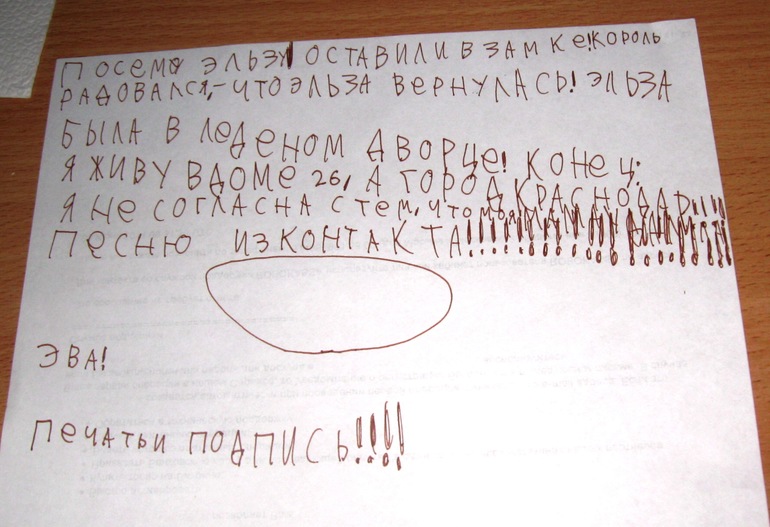 ПОСЕМУ ЭЛЬЗУ ОСТАВИЛИ В ЗАМКЕ! КОРОЛЬ
РАДОВАЛСЯ,- ЧТО ЭЛЬЗА ВЕРНУЛАСЬ! ЭЛЬЗА
БЫЛА В ЛЕДЕНОМ ДВОРЦЕ! КОНЕЦ.
Я ЖИВУ В ДОМЕ 26, А ГОРОД КРАСНОДАР!!!!
Я НЕ СОГЛАСНА С ТЕМ, ЧТО МОЯ МАМА
ПЕСНЮ ИЗ КОНТАКТА!!!!!!!!!!!!!!!!!!!!
ЭВА!
ПЕЧАТЬ И ПОДПИСЬ!!!!